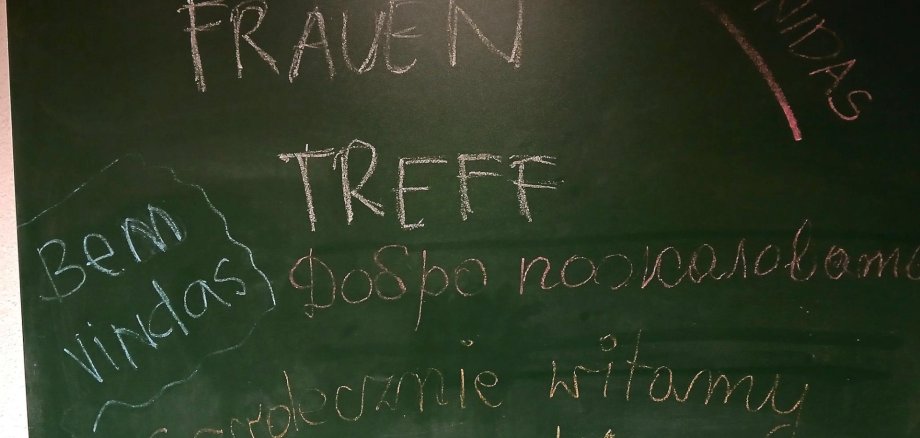 FRAUEN
NIDAS
TREFF
Bem
vindas
Добро пожаловать
serdecznie witamy